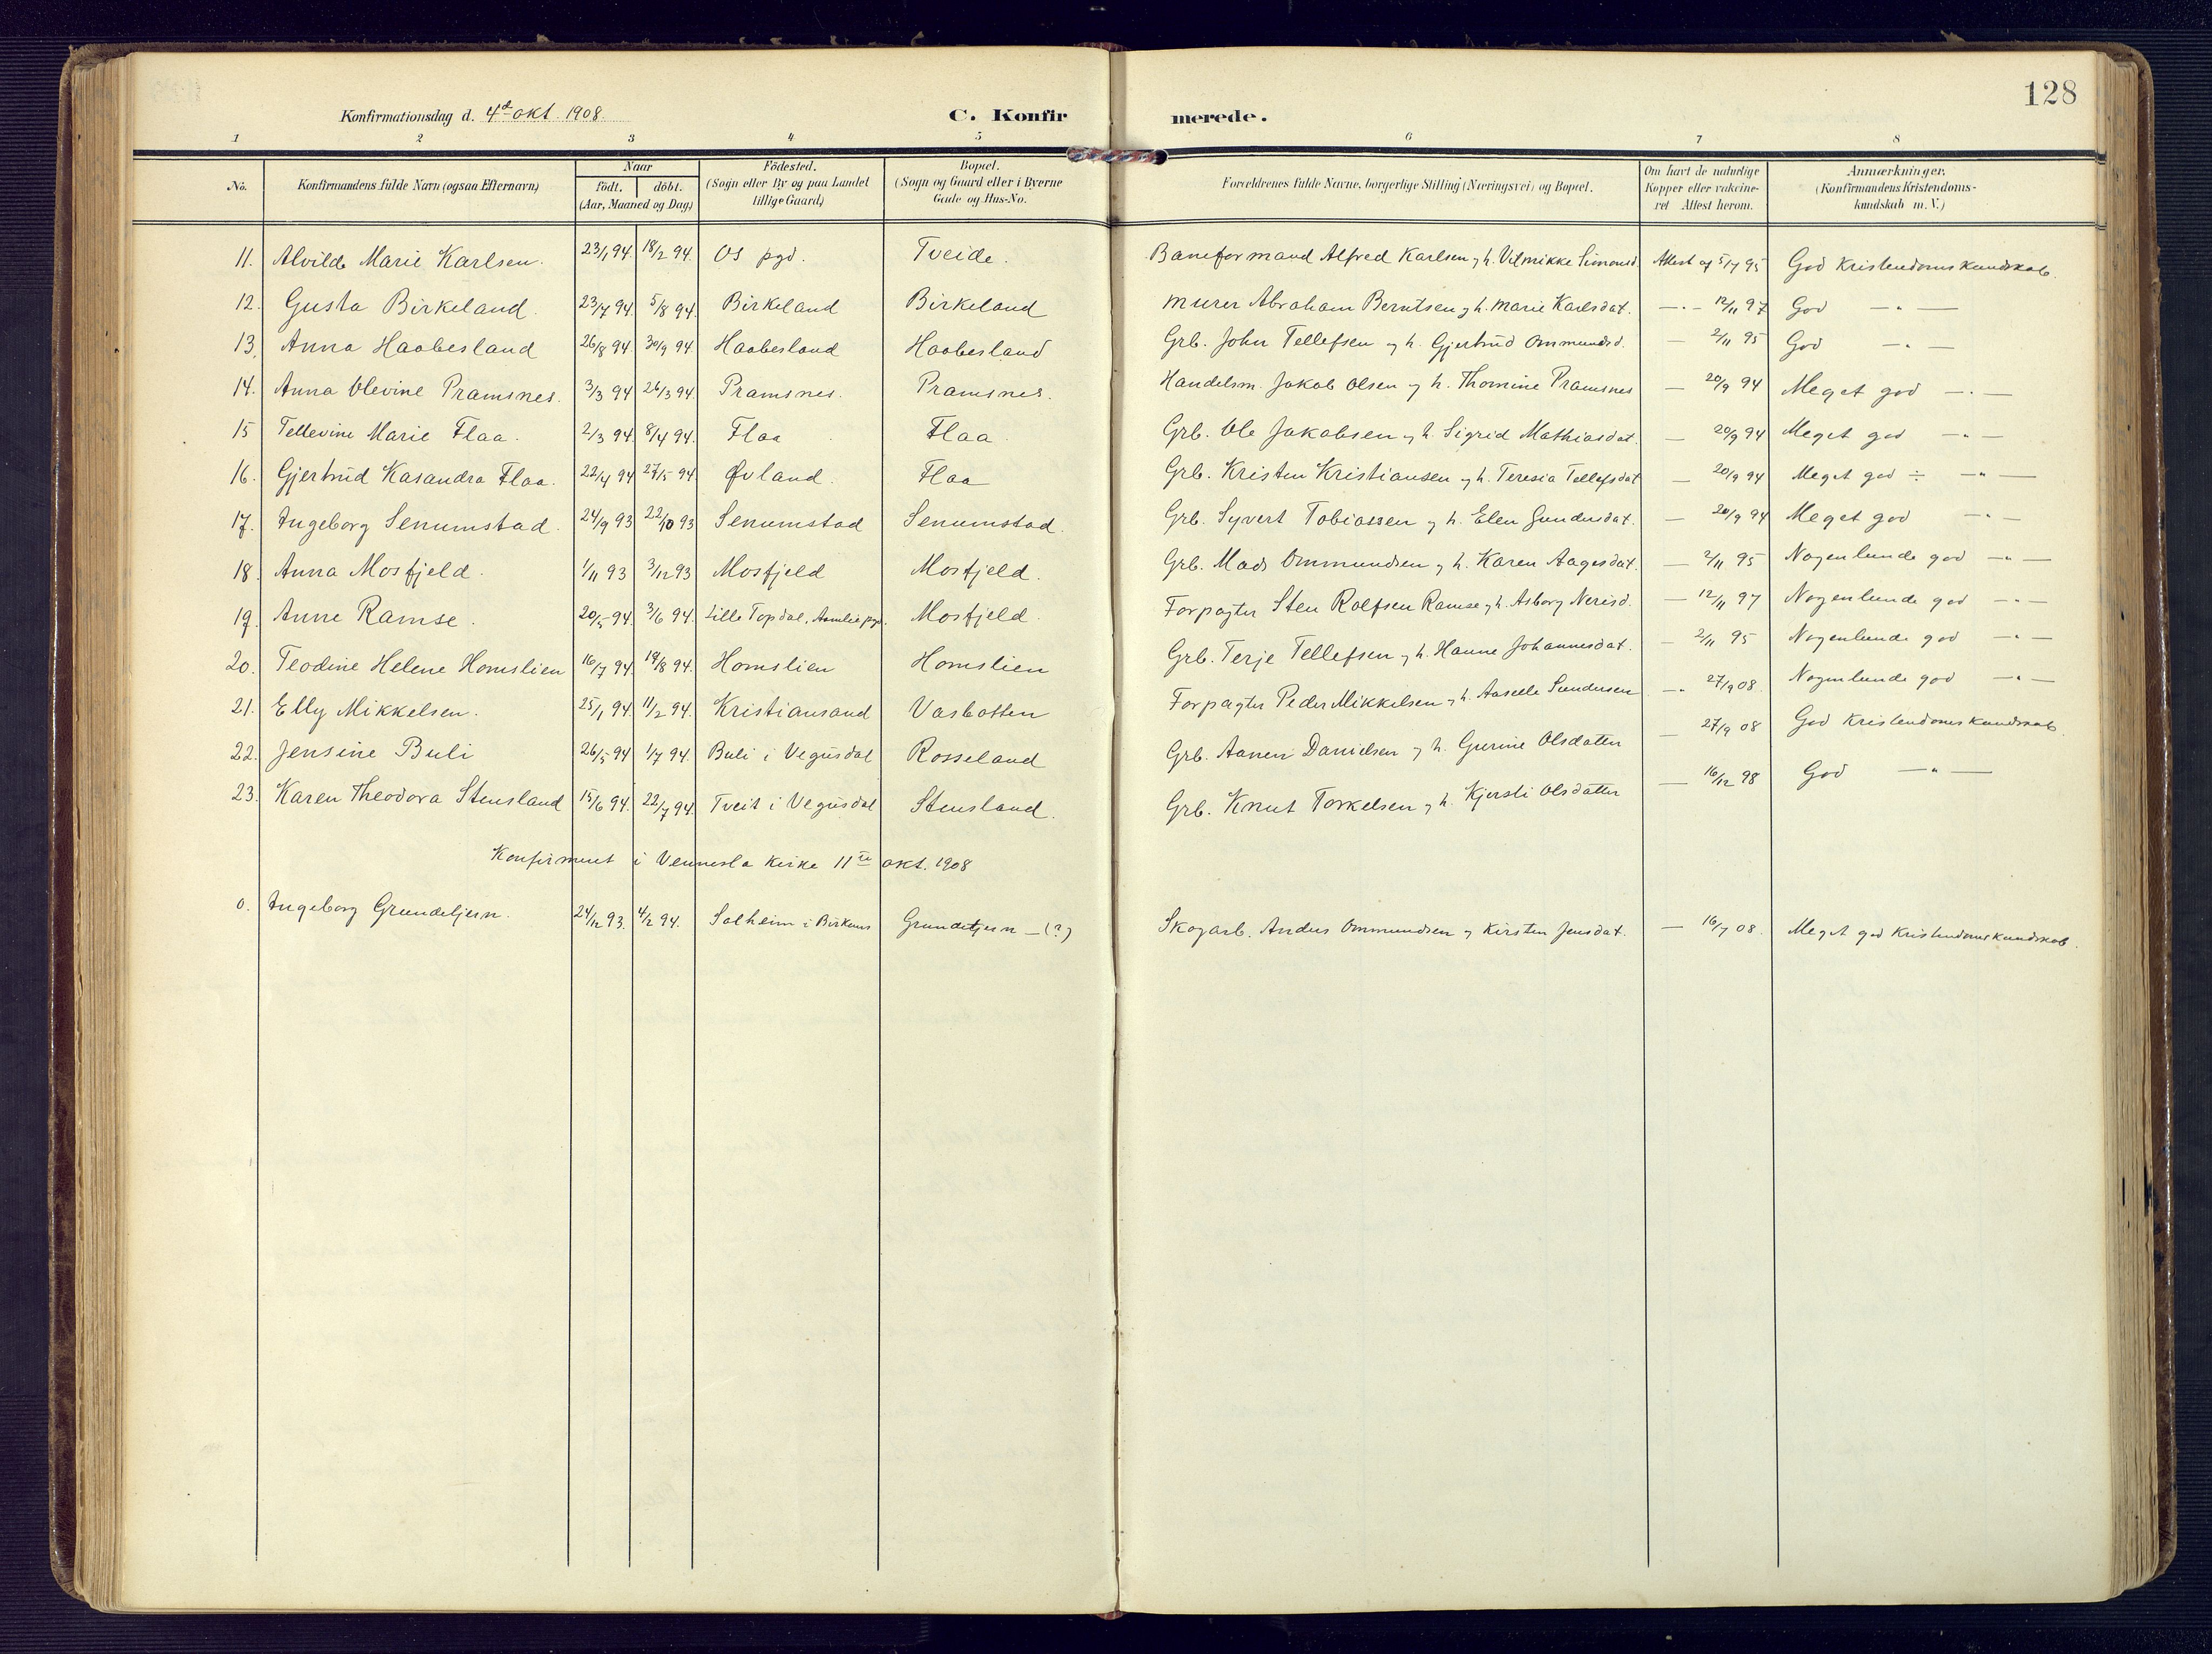 128
Konfirmationsdag d. 4de okt. 1908. C. Konfirmerede.
1 2 3 4 5 6 7 8
No. Konfirmandens fulde Navn (ogsaa Efternavn) Naar födt. döbt. (Aar, Maaned og Dag) Födested. (Sogn eller By og paa Landet tillige Gaard) Bopæl. (Sogn og Gaard eller i Byerne Gade og Hus-No. Forældrenes fulde Navne, borgerlige Stilling (Næringsvei) og Bopæl. Om havt de naturlige Kopper eller vakcineret Attest herom. Anmærkninger. (Konfirmandens Kristendomskundskab m. V.)
11. Alvilde Marie Karlsen. 23/1 94. 18/2 94. Os pgd. Tveide. Baneformand Alfred Karlsen og h. Vilmikke Simonsd. Attest af 5/7 95 God Kristendomskundskab.
12. Gusta Birkeland. 23/7 94. 5/8 94. Birkeland Birkeland Murer Abraham Berntsen og h. Marie Karlsdat. —"— 12/11 97 God —"—
13. Anna Haabesland 26/8 94. 30/9 94. Haabesland Haabesland Grb. John Tellefsen og h. Gjertrud Ommundsd. — 2/11 95 God —"—
14. Anna Olevine Pramsnes. 3/3 94 26/3 94. Pramsnes. Pramsnes. Handelsm. Jakob Olsen og h. Thomine Pramsnes — 20/9 94 Meget god —"—
15 Tellevine Marie Flaa. 2/3 94. 8/4 94. Flaa Flaa Grb. Ole Jakobsen og h. Sigrid Mathiasdat. — 20/9 94 Meget god —"—
16. Gjertrud Kasandra Flaa. 22/4 94 27/5 94. Øvland. Flaa Grb. Kristen Kristiansen og h. Teresia Tellefsdat — 20/9 94 Meget god ÷ —"—
17. Ingeborg Senumstad. 24/9 93 22/10 93 Senumstad Senumstad. Grb. Syvert Tobiassen og h. Elen Gundersdat. — 20/9 94 Meget god —"—
18. Anna Mosfjeld. 1/11 93 3/12 93 Mosfjeld Mosfjeld. Grb. Mads Ommundsen og h. Karen Aagesdat. — 2/11 95 Nogenlunde god —"—
19. Anne Ramse. 20/5 94. 3/6 94. Lille Topdal, Aamlie pgd. Mosfjeld. Forpagter Sten Rolfsen Ramse og h. Asborg Nerisd. — 12/11 97 Nogenlunde god —"—
20. Teodine Helene Homslien 16/7 94. 19/8 94. Homslien Homslien Grb. Terje Tellefsen og h. Hanne Johannesdat. — 2/11 95 Nogenlunde god —"—
21. Elly Mikkelsen. 25/1 94. 11/2 94. Kristiansand Vasbotten Forpagter Peder Mikkelsen og h. Gundersen —" 27/9 08. Nogenlunde god —"—
22. Jensine Buli 26/5 94 1/7 94. Buli i Vegusdal Rosseland Grb. Aanen Danielsen og h. Gurine Olsdatter — 27/9 08 God Kristendomskundskab
23. Karen Theodora Stensland 15/6 94. 22/7 94. Tveit i Vegusdal Stensland. Grb. Knut Torkelsen og h. Kjersti Olsdatter — 16/12 98 God —"—
Konfirmeret i Vennesla Kirke 11te okt. 1908
0. Ingeborg Grundetjern. 24/12 93. 4/2 94. Solheim i Birkenes Grundetjern — (?) Skogarb. Anders Ommundsen og Kirsten Jensdat. — 16/7 08. Meget god Kristendomskundskab.